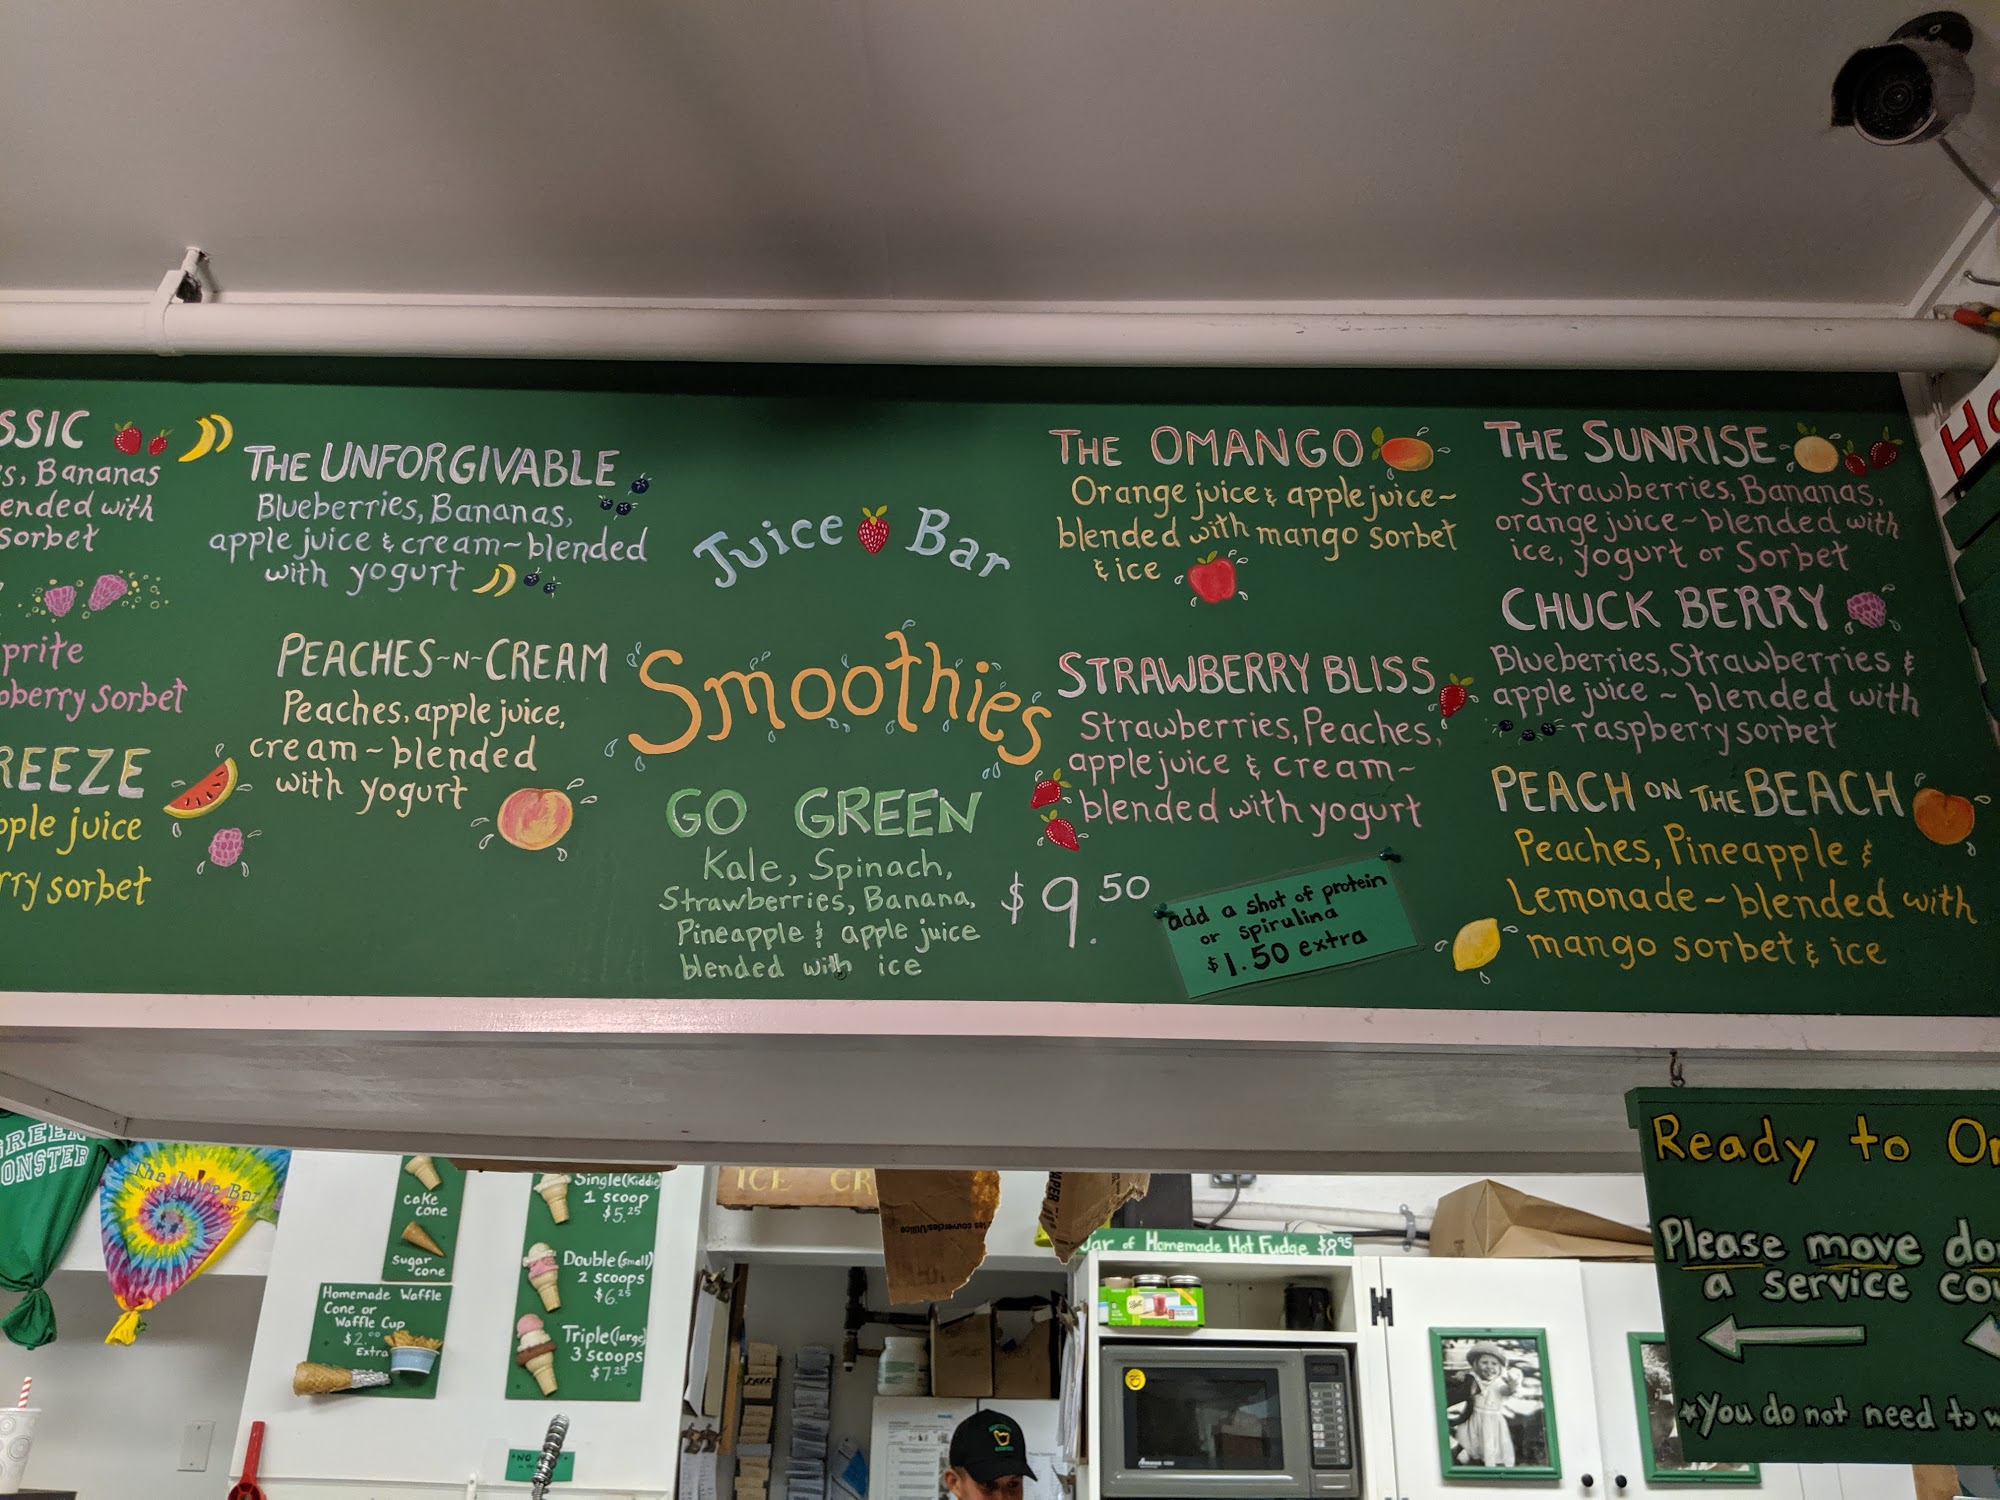 Bananas
with
sorbet
sorbet
apple juice
sorbet
THE UNFORGIVABLE
Blueberries, Bananas,
apple juice & cream~blended
with yogurt
PEACHES~N~CREAM
Peaches, apple juice,
cream~blended
with yogurt
Juice Bar
Smoothies
GO GREEN
Kale, Spinach,
Strawberries, Banana,
Pineapple & apple juice
blended with ice
$9.50
THE OMANGO
Orange juice & apple juice~
blended with mango sorbet
& ice
STRAWBERRY BLISS
Strawberries, Peaches,
apple juice & cream~
blended with yogurt
add a shot of protein
or spirulina
$1.50 extra
THE SUNRISE
Strawberries, Bananas,
orange juice~blended with
ice, yogurt or Sorbet
CHUCK BERRY
Blueberries, Strawberries &
apple juice ~ blended with
raspberry sorbet
PEACH ON THE BEACH
Peaches, Pineapple &
Lemonade~blended with
mango sorbet & ice
GREEN
The Juice Bar
cake
cone
sugar
cone
Homemade Waffle
Cone or
Waffle Cup
$2.00
Extra
Single (Kiddie)
1 scoop
$5.25
Double (small)
2 scoops
$6.25
Triple (large)
3 scoops
$7.25
ICE
Jar of Homemade Hot Fudge $8.95
Ready to
Please move
a service
*You do not need to